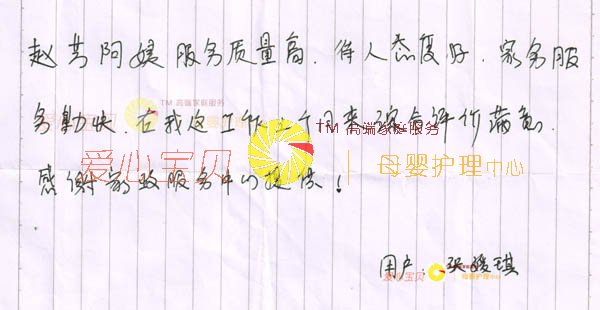 赵芳阿姨服务质量高、待人态度好、家务服
TM 高端家庭服务
务勤快、在我这工作2个月来综合评价满意.
TM 高端家庭服务
爱心宝贝 母婴护理中心
感谢家政服务中心提供！
用户：
爱心宝贝 母婴护理中心